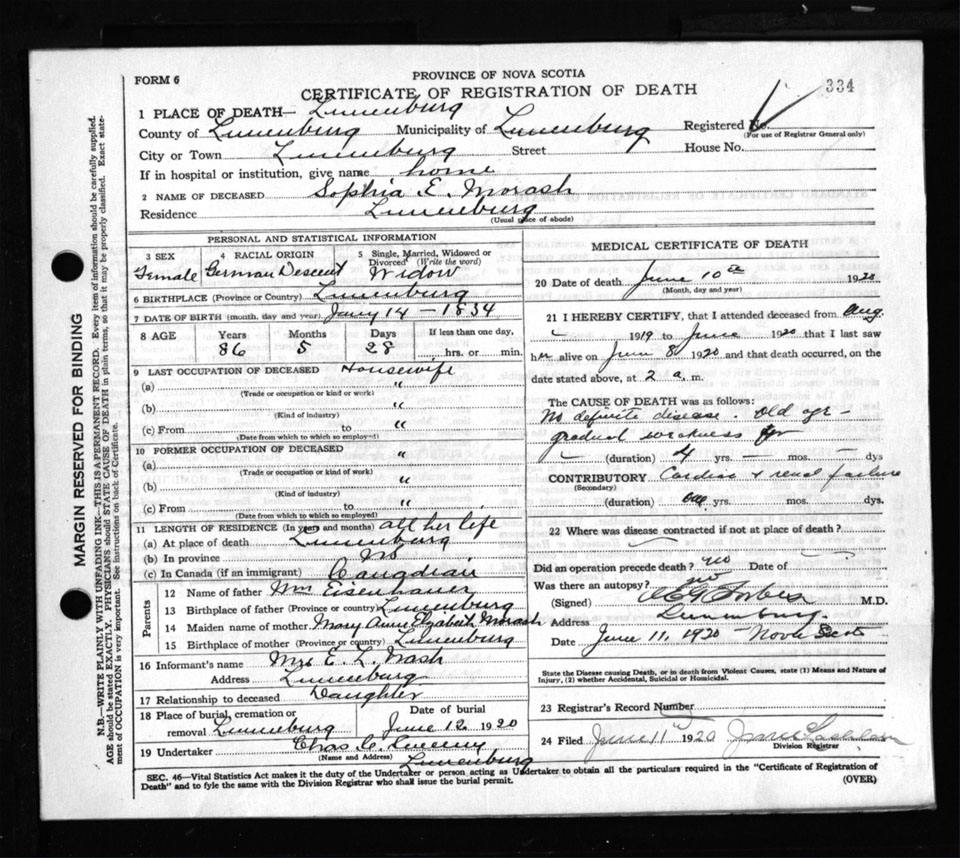 FORM 6
PROVINCE OF NOVA SCOTIA
CERTIFICATE OF REGISTRATION OF DEATH
334
1 PLACE OF DEATH— Lunenburg
County of Lunenburg Municipality of Lunenburg Registered No.
(For use of Registrar General only)
City or Town Lunenburg Street House No.
If in hospital or institution, give name home
2 NAME OF DECEASED Sophia E. Morash
Residence Lunenburg
(Usual place of abode)
PERSONAL AND STATISTICAL INFORMATION
3 SEX Female
4 RACIAL ORIGIN German Descent
5 Single, Married, Widowed or Divorced (Write the word) Widow
6 BIRTHPLACE (Province or Country) Lunenburg
7 DATE OF BIRTH (month, day and year) Jany 14 - 1834
8 AGE Years Months Days If less than one day,
86 5 28 hrs. or min.
9 LAST OCCUPATION OF DECEASED Housewife
(a) "
(Trade or occupation or kind or work)
(b) "
(Kind of industry)
(c) From to "
(Date from which to which so employed)
10 FORMER OCCUPATION OF DECEASED "
(a) "
(Trade or occupation or kind of work)
(b) "
(Kind of industry)
(c) From to "
(Date from which to which so employed)
11 LENGTH OF RESIDENCE (In years and months) all her life
(a) At place of death Lunenburg
(b) In province NS
(c) In Canada (if an immigrant) Canadian
Parents
12 Name of father Wm Eisenhauer
13 Birthplace of father (Province or country) Lunenburg
14 Maiden name of mother Mary Anne Elizabeth Morash
15 Birthplace of mother (Province or country) Lunenburg
16 Informant's name Mrs E. L. Nash
Address Lunenburg
17 Relationship to deceased Daughter
18 Place of burial, cremation or removal Lunenburg Date of burial June 12 1920
19 Undertaker Chas
(Name and Address) Lunenburg
MEDICAL CERTIFICATE OF DEATH
20 Date of death June 10th 1920
(Month, day and year)
21 I HEREBY CERTIFY, that I attended deceased from Aug
1919 to June 1920 that I last saw
her alive on June 8 1920 and that death occurred, on the
date stated above, at 2 a. m.
The CAUSE OF DEATH was as follows:
No definite disease. Old age -
gradual weakness for
(duration) 4 yrs. — mos. — dys
CONTRIBUTORY Cardiac & renal failure
(Secondary)
(duration) one yrs. mos. dys.
22 Where was disease contracted if not at place of death?
Did an operation precede death? no Date of —
Was there an autopsy? no
(Signed) Forbes M.D.
Address Lunenburg.
Date June 11, 1920 - Nova Scotia
State the Disease causing Death, or in death from Violent Causes, state (1) Means and Nature of
Injury, (2) whether Accidental, Suicidal or Homicidal.
23 Registrar's Record Number
24 Filed June 11th 1920
Division Registrar
SEC. 46—Vital Statistics Act makes it the duty of the Undertaker or person acting as Undertaker to obtain all the particulars required in the "Certificate of Registration of
Death" and to fyle the same with the Division Registrar who shall issue the burial permit. (OVER)
MARGIN RESERVED FOR BINDING
N.B.—WRITE PLAINLY WITH UNFADING INK—THIS IS A PERMANENT RECORD. Every item of information should be carefully supplied.
AGE should be stated EXACTLY. PHYSICIANS should STATE CAUSE OF DEATH in plain terms, so that it may be properly classified. Exact state-
ment of OCCUPATION is very important. See instructions on back of Certificate.